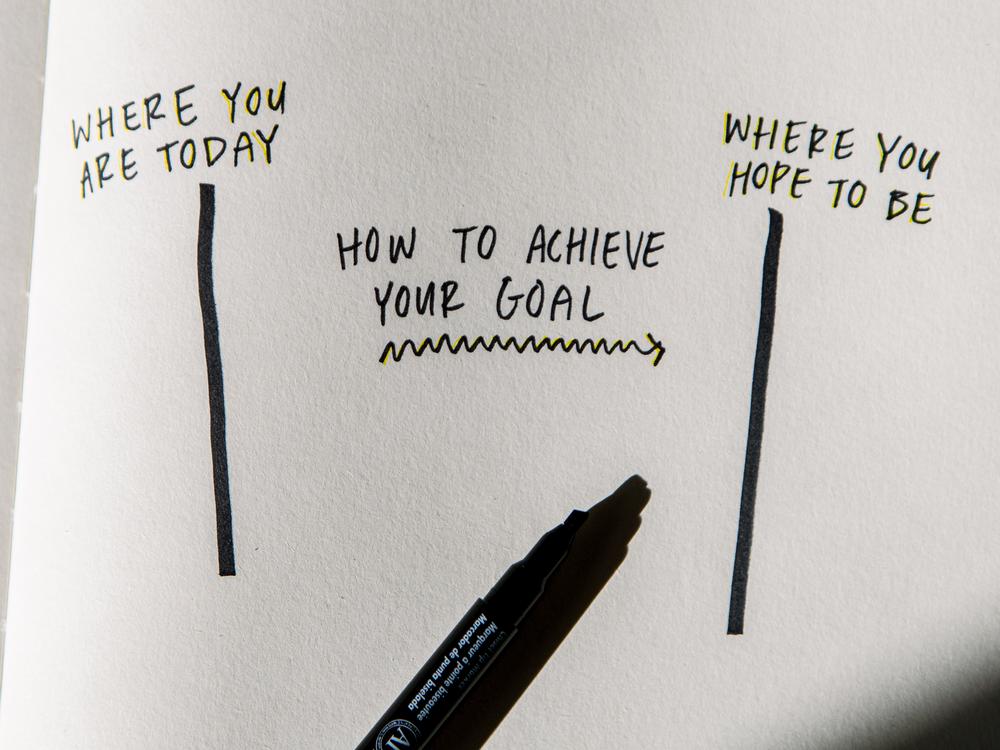 WHERE YOU
ARE TODAY
WHERE YOU
HOPE TO BE
HOW TO ACHIEVE
YOUR GOAL
Chisel tip marker
Marqueur à pointe biseautée
Marcador de punta biselada